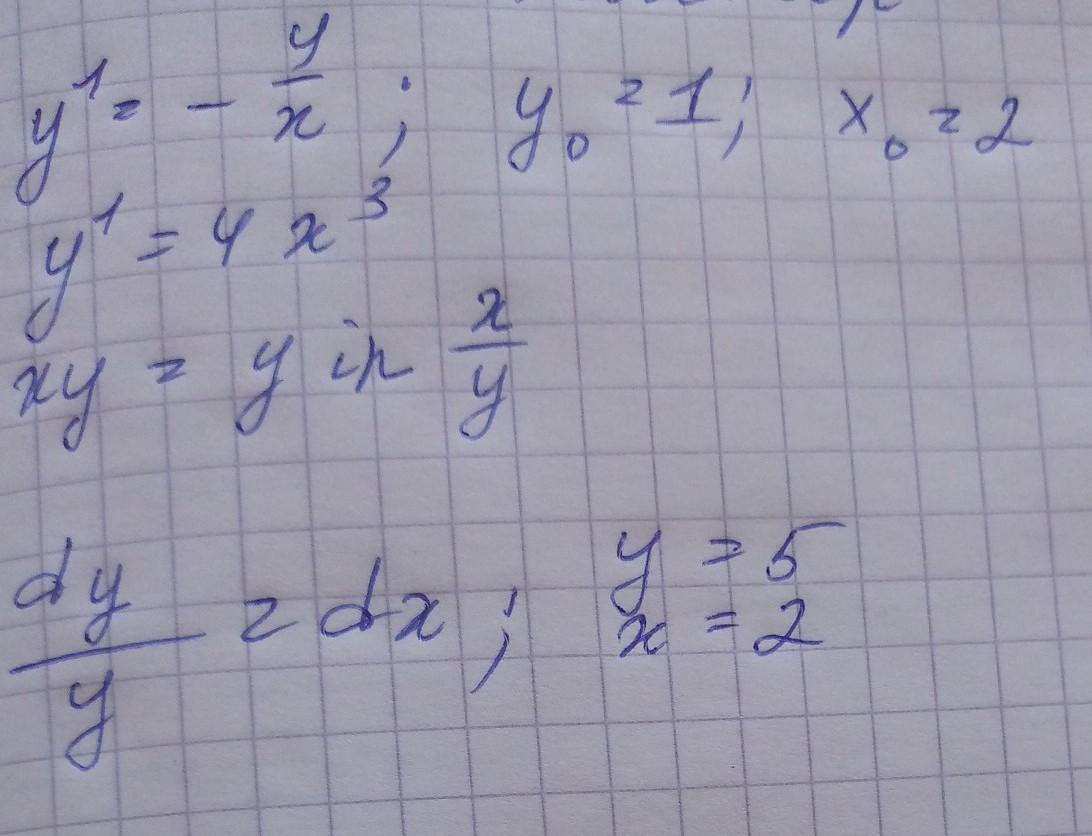 y¹ = - y/x ; y₀ = 1; x₀ = 2
y¹ = 4x³
xy = y in x/y
dy/y = dx ; y = 5
x = 2